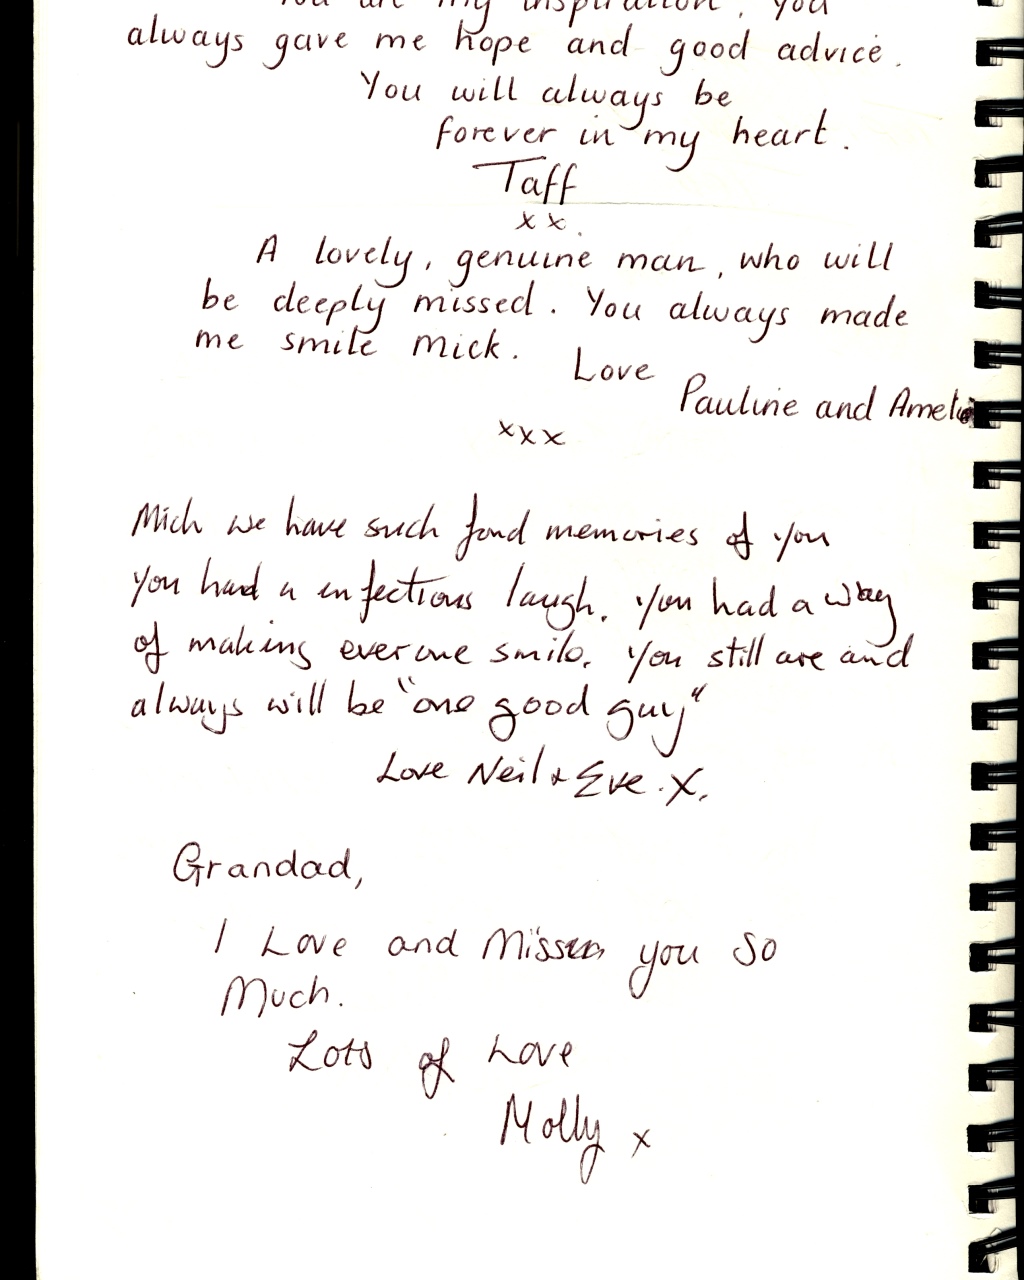 You are my inspiration. You
always gave me hope and good advice.
You will always be
forever in my heart.
Taff
x x
A lovely, genuine man, who will
be deeply missed. You always made
me smile Mick.
Love
Pauline and Amelia
xxx
Mick we have such fond memories of you
you had a infectious laugh. you had a way
of making everone smile. you still are and
always will be "one good guy"
Love Neil + Eve. X.
Grandad,
I Love and Miss you so
Much.
Lots of Love
Molly x